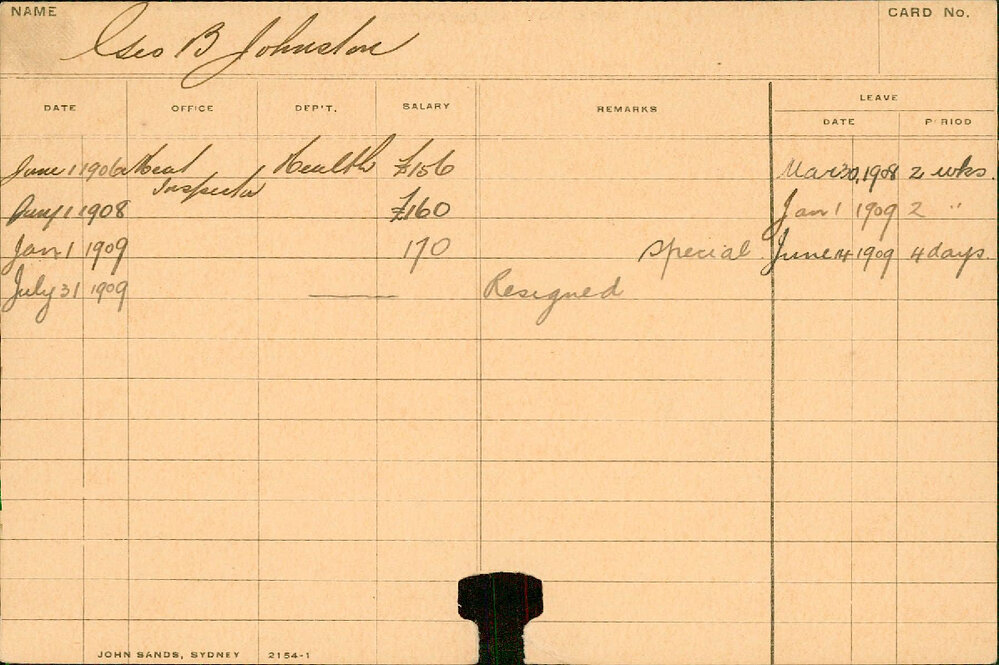 NAME
CARD No.
Geo B Johnston
DATE OFFICE DEP'T. SALARY REMARKS LEAVE
DATE PERIOD
June 1 1906 Meat Health £156 Mar 30, 1908 2 wks.
Inspector
1 1908 £160 Jan 1 1909 2 "
Jan 1 1909 170 Special June 14 1909 4 days.
July 31 1909 Resigned
JOHN SANDS, SYDNEY 2154-1